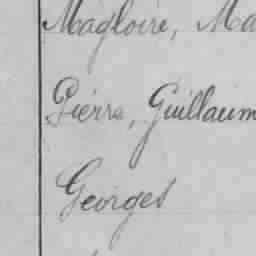 Magloire, Ma
Pierre, Guillaum
Georges